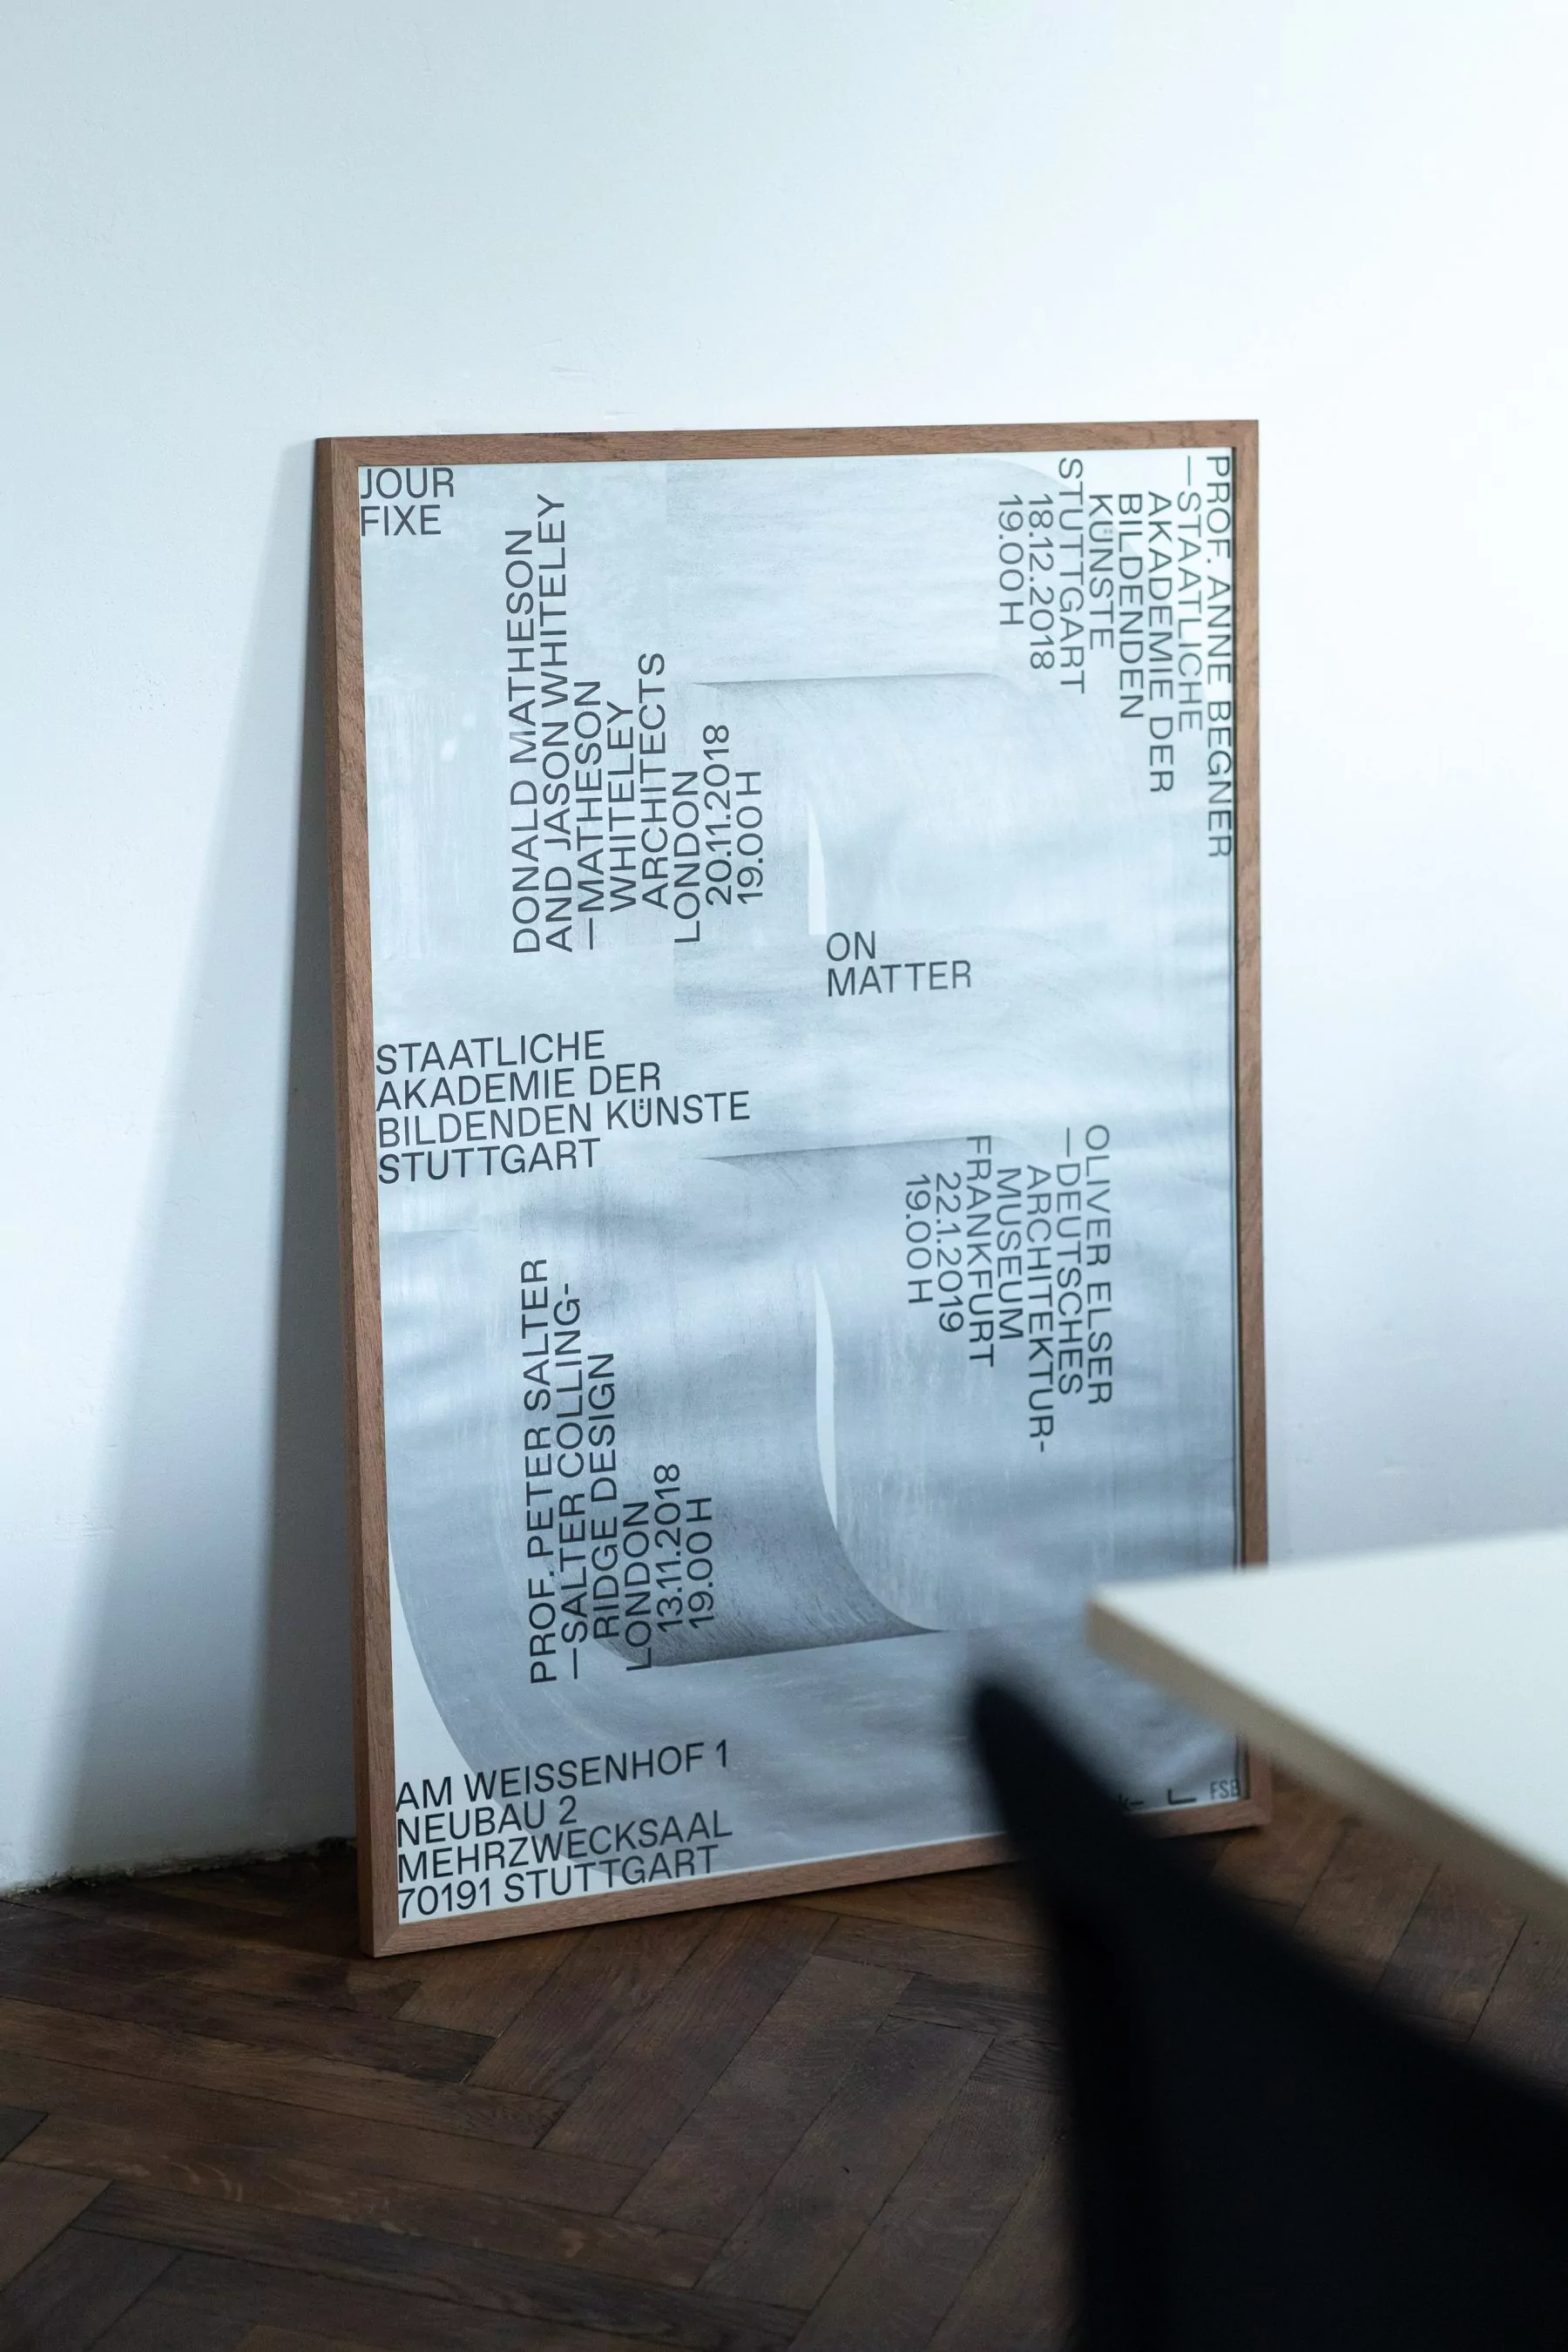 JOUR
FIXE
DONALD MATHESON
AND JASON WHITELEY
—MATHESON
WHITELEY
ARCHITECTS
LONDON
20.11.2018
19.00 H
PROF. ANNE BEGNER
—STAATLICHE
AKADEMIE DER
BILDENDEN
KÜNSTE
STUTTGART
18.12.2018
19.00 H
ON
MATTER
STAATLICHE
AKADEMIE DER
BILDENDEN KÜNSTE
STUTTGART
PROF. PETER SALTER
—SALTER COLLING-
RIDGE DESIGN
LONDON
13.11.2018
19.00 H
OLIVER ELSER
—DEUTSCHES
ARCHITEKTUR-
MUSEUM
FRANKFURT
22.1.2019
19.00 H
AM WEISSENHOF 1
NEUBAU 2
MEHRZWECKSAAL
70191 STUTTGART
FSB